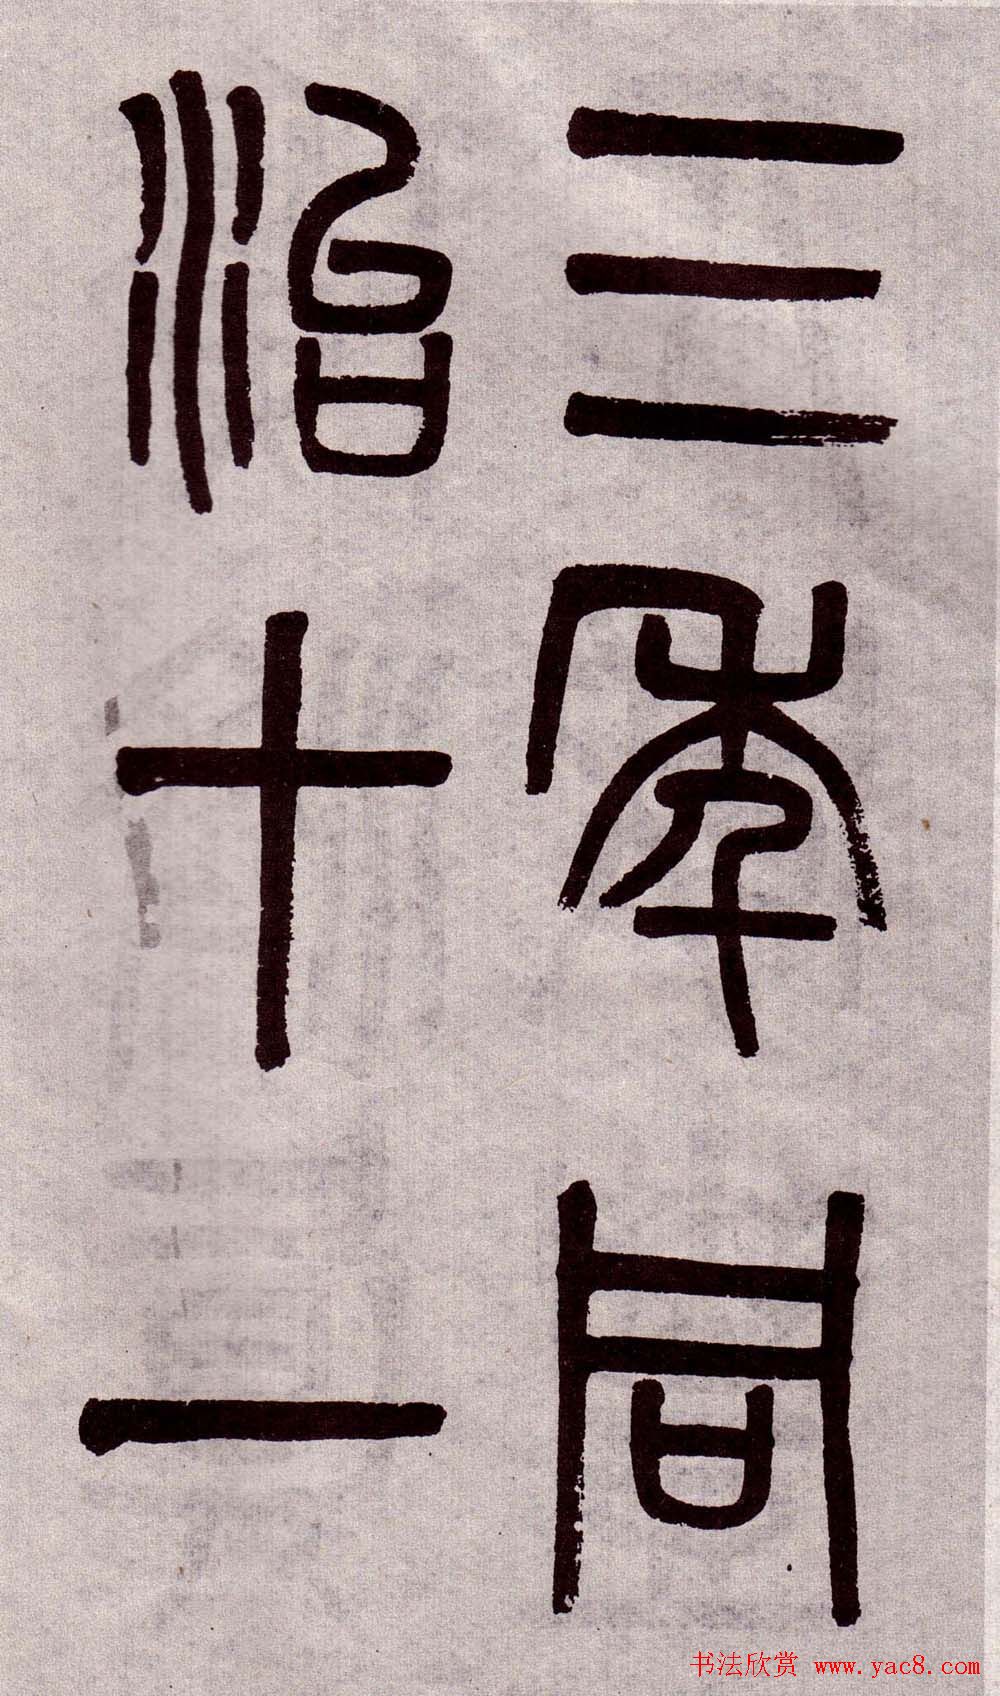 三年同
治十一
书法欣赏 www.yac8.com